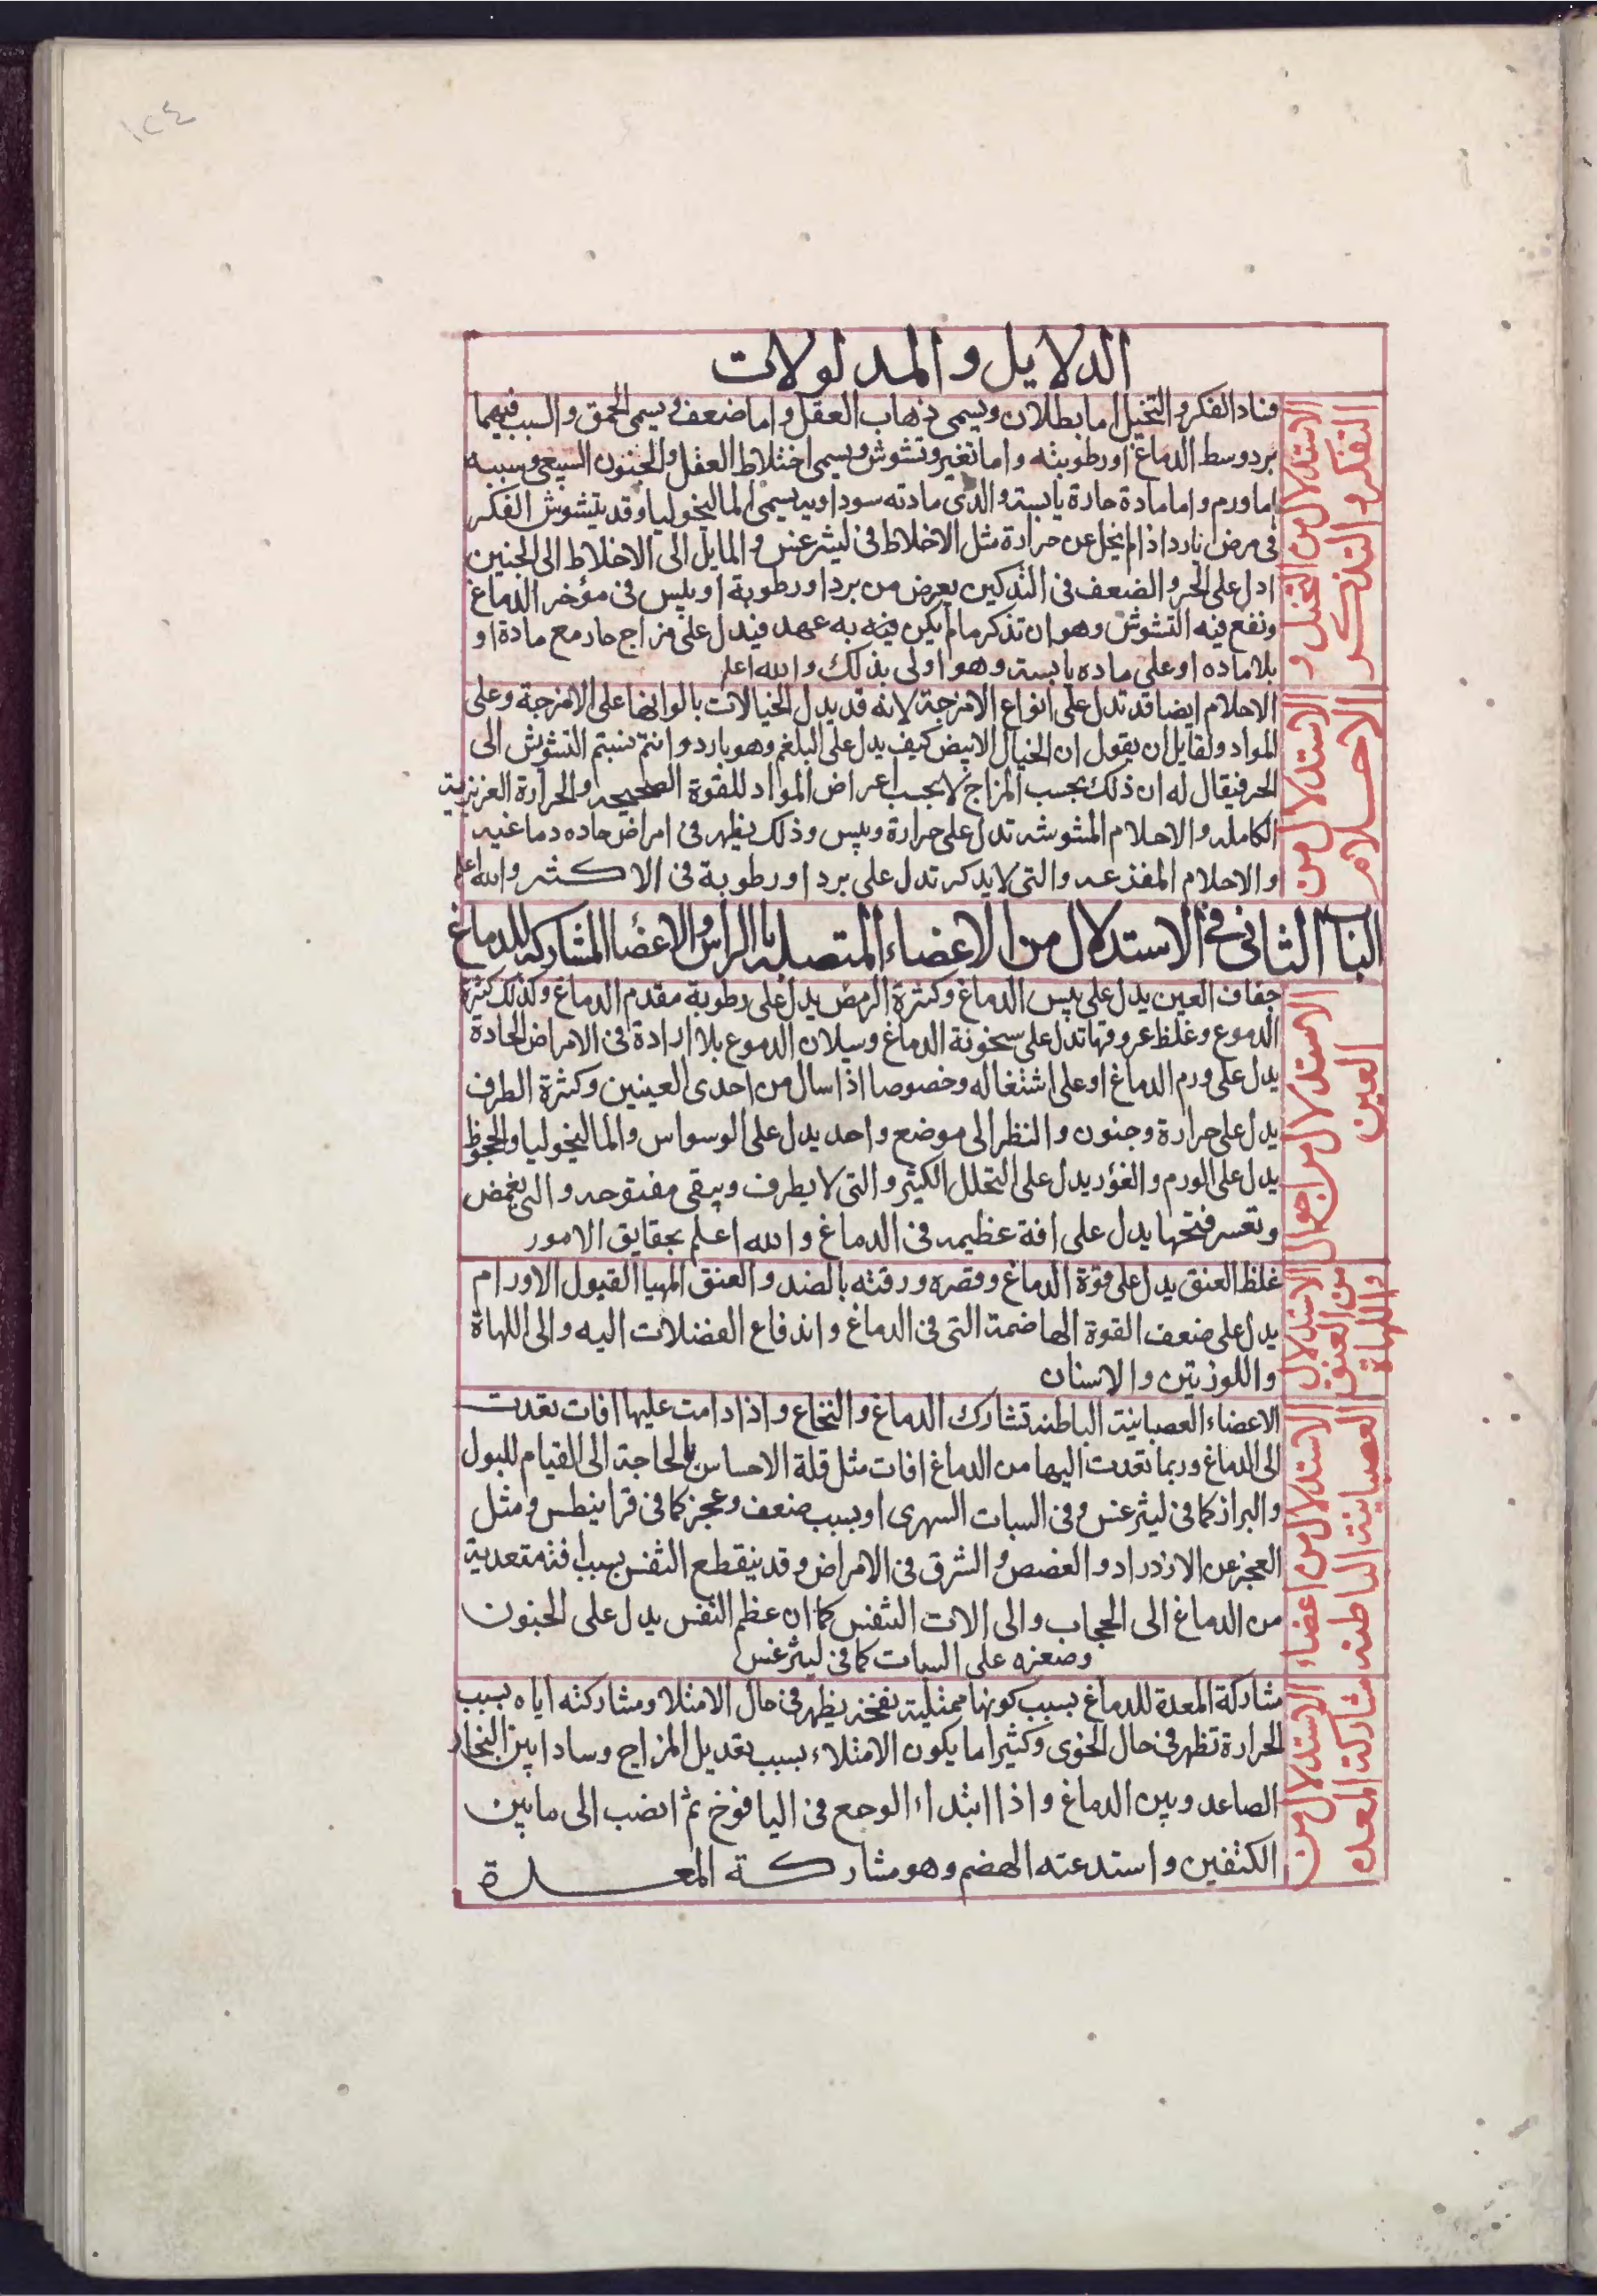 ١٢٤
الدلايل والمدلولات
الاستدلال من التخيل و
التفكر والتذكر
فساد الفكر والتخيل اما بطلان ويسمى ذهاب العقل واما ضعف ويسمى الحمق والسبب فيهما
برد وسط الدماغ او رطوبته واما تغير وتشوش ويسمى اختلاط العقل والجنون السبعي وسببه
اما ورم واما مادة حارة يابسة والذي مادته سوداويه يسمى المالیخوليا وقد يتشوش الفكر
فى مرض بارد اذا لم يخل عن حرارة مثل الاخلاط فى ليثرغس والمايل الى الاخلاط الى الجنين
ادل على الحر والضعف فى التدكين يعرض من برد او رطوبة او يبس فى مؤخر الدماغ
ونفع فيه التشوش وهو ان تذكر ما لم يكن فيه به عهد فيدل على مزاج حار مع مادة او
بلا ماده او على ماده يابسة وهو اولى بذلك والله اعلم
الاستدلال من
الاحلام
الاحلام ايضا قد تدل على انواع الامزجة لانه قد يدل الخيالات بالوانها على الامزجة وعلى
المواد ولقايل ان يقول ان الخيال الابيض كيف يدل على البلغم وهو بارد وانتم نسبتم التشوش الى
الحر فيقال له ان ذلك بحسب المزاج لا بحسب اعراض المواد للقوة الصحيحه والحرارة الغزيزية
الكامله والاحلام المشوشه تدل على حرارة ويبس وذلك يظهر فى امراض حاده دماغيه
والاحلام المفزعه والتى لا يدكر تدل على برد او رطوبة فى الاكثر والله اعلم
الباب الثانى فى الاستدلال من الاعضاء المتصله بالراس والاعضا المشاركه للدماغ
الاستدلال من احوال
العين
جفاف العين يدل على يبس الدماغ وكثرة الرمص يدل على رطوبة مقدم الدماغ وكذلك كثرة
الدموع وغلظ عروقها تدل على سخونة الدماغ وسيلان الدموع بلا ارادة فى الامراض الحادة
يدل على ورم الدماغ او على اشتغاله وخصوصا اذا سال من احدى العينين وكثرة الطرف
يدل على حرارة وجنون والنظر الى موضع واحد يدل على الوسواس والمالیخوليا والجحوظ
يدل على الورم والغؤر يدل على التحلل الكثير والتى لا يطرف ويبقى مفتوحه والتى يغمض
وتعسر فتحها يدل على افة عظيمه فى الدماغ والله اعلم بحقايق الامور
الاستدلال
من العنق
واللهاة
غلظ العنق يدل على قوة الدماغ وقصره ورقته بالضد والعنق المهيا القبول الاورام
يدل على ضعف القوة الهاضمة التى فى الدماغ واندفاع الفضلات اليه والى اللهاة
واللوزتين والاسنان
الاستدلال من اعضاء
العصبانية الباطنه
الاعضاء العصبانية الباطنه تشارك الدماغ والنخاع واذا دامت عليها افات تعدت
الى الدماغ وربما تعدت اليها من الدماغ افات مثل قلة الاحساس بالحاجة الى القيام للبول
والبراز كما فى ليثرغس وفى السبات السهرى او بسبب ضعف وعجز كما فى قرانيطس ومثل
العجز عن الازدراد والغصص والشرق فى الامراض وقد ينقطع النفس بسبب افة متعدية
من الدماغ الى الحجاب والى الات التنفس كما ان عظم النفس يدل على الجنون
وصغره على السبات كما فى ليثرغس
الاستدلال من
مشاركة المعده
مشاركة المعدة للدماغ بسبب كونها ممتلية نفخه يظهر فى حال الامتلا ومشاركته اياه بسبب
الحرارة تظهر فى حال الخوى وكثيرا ما يكون الامتلاء بسبب تعديل المزاج وسادا بين البخار
الصاعد وبين الدماغ واذا ابتداء الوجع فى اليافوخ ثم انصب الى ما بين
الكتفين واستدعته الهضم وهو مشاركة المعدة